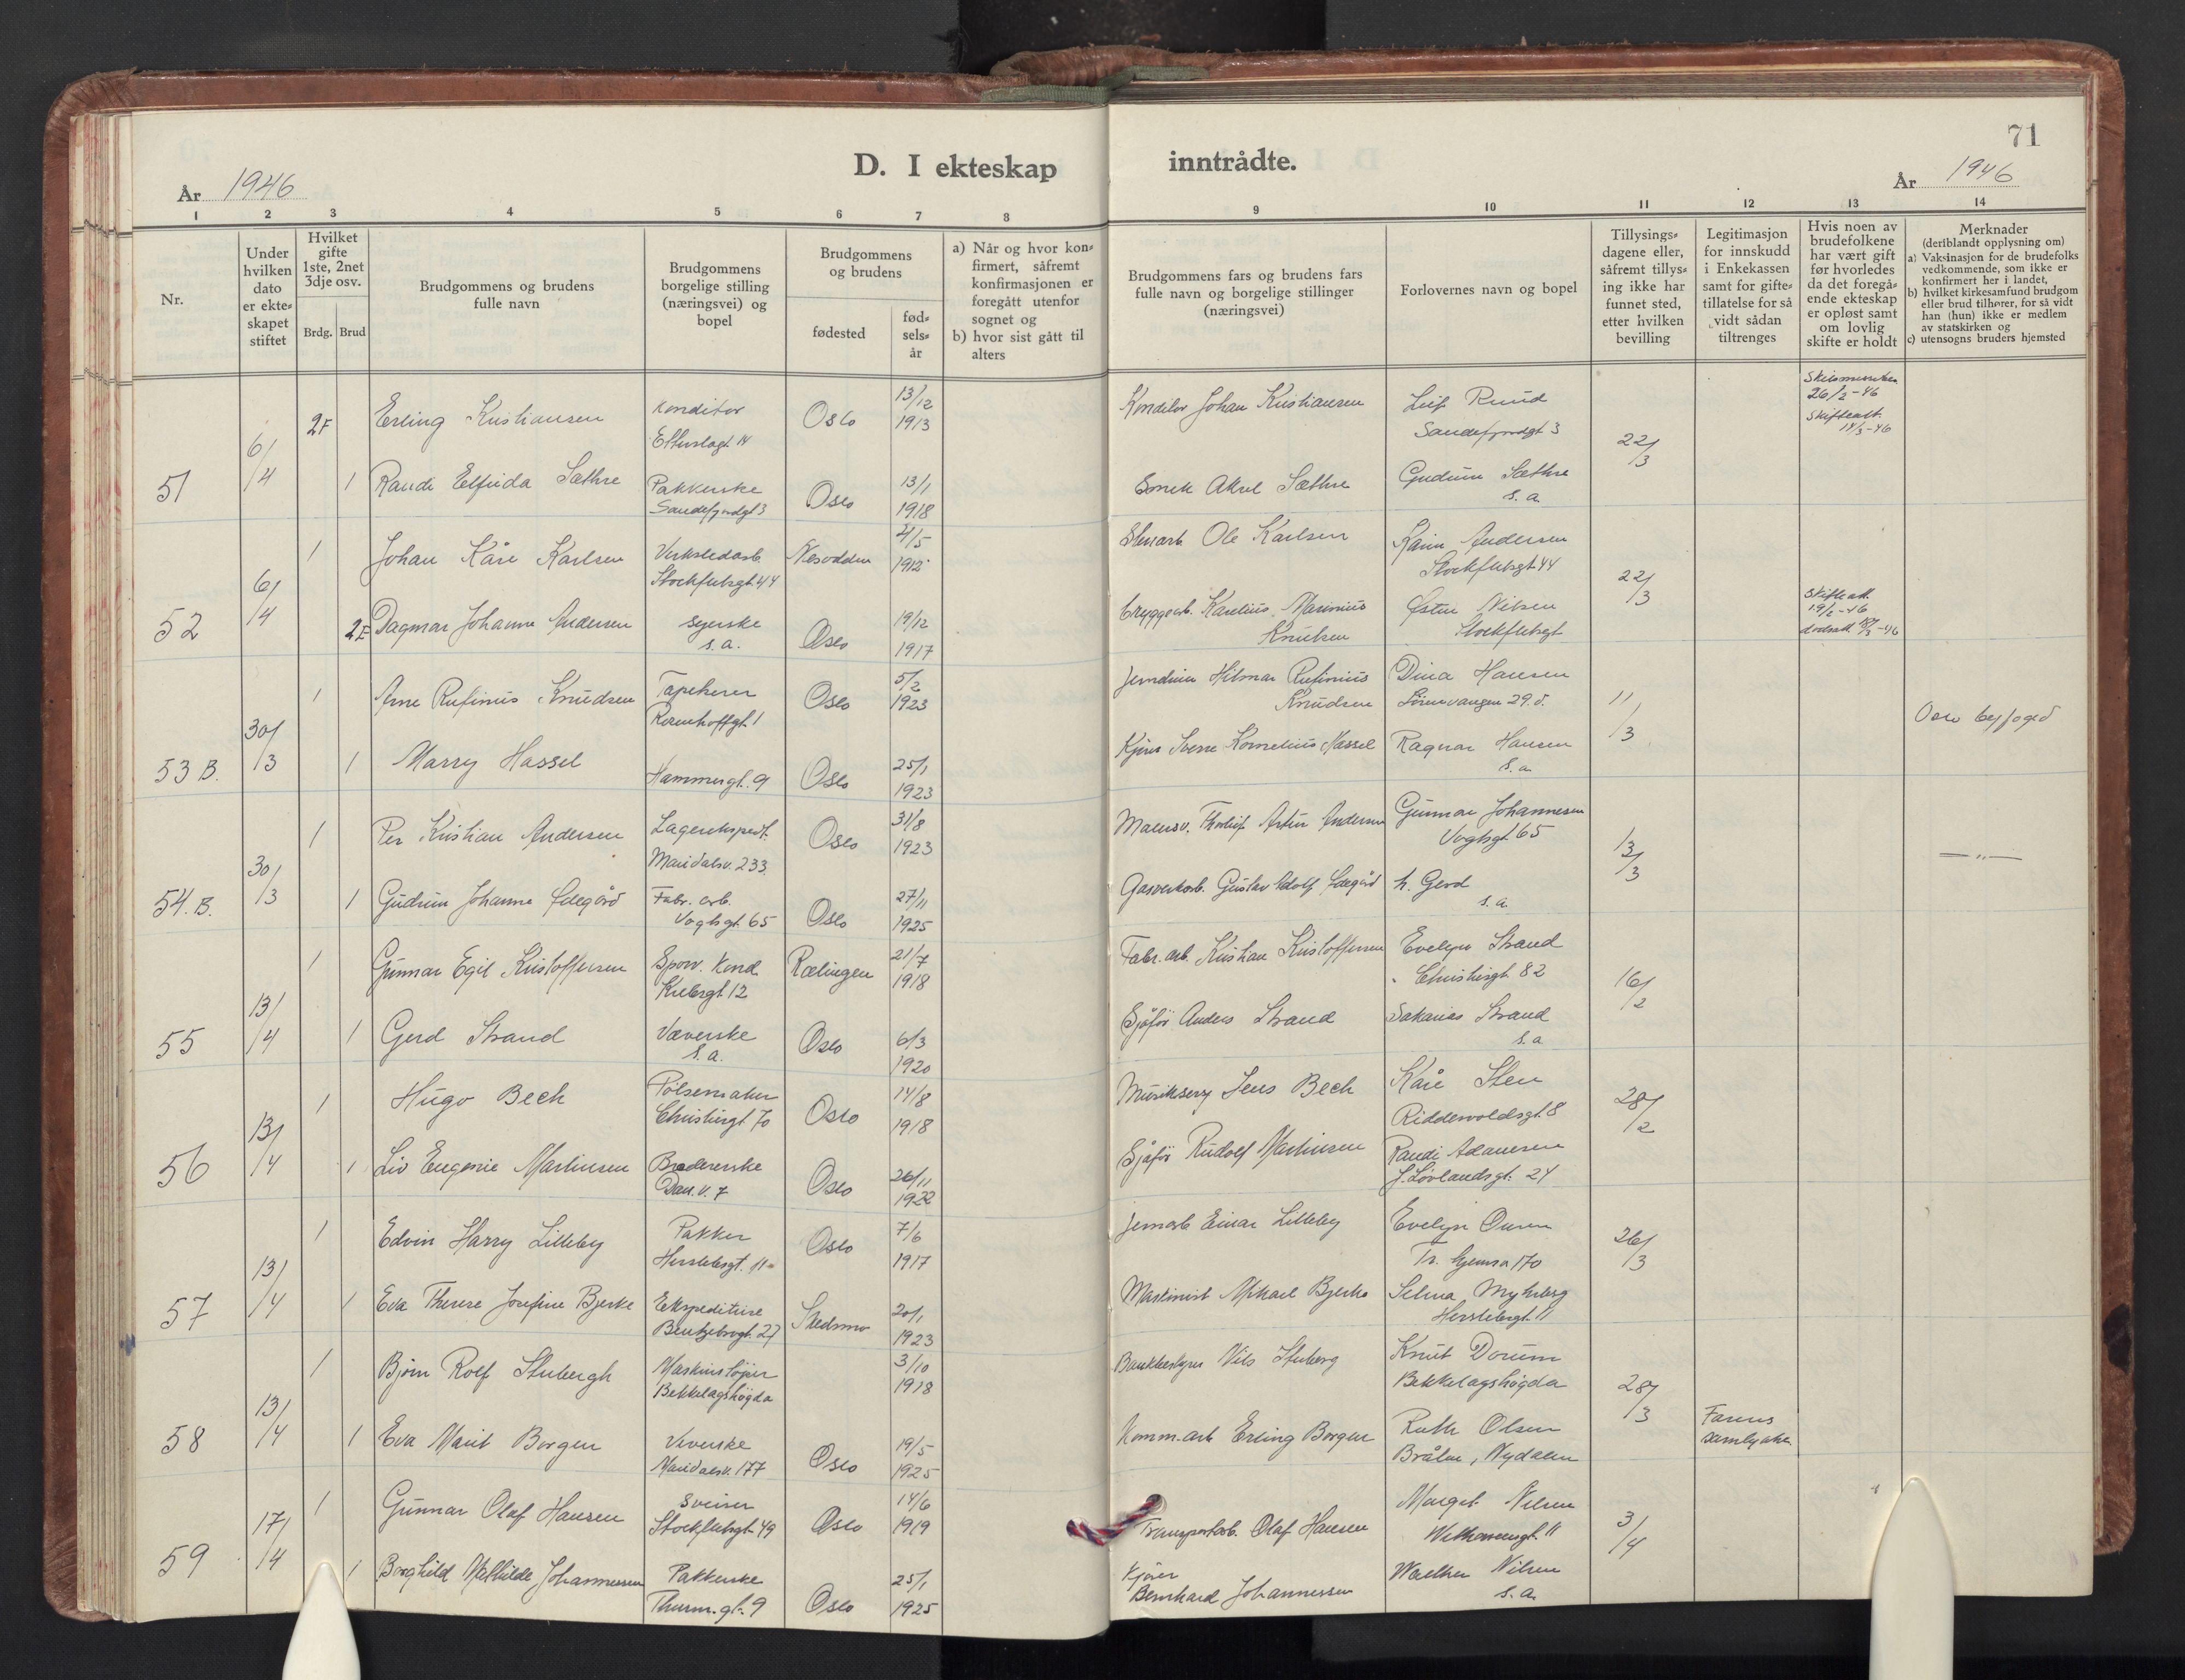 71
D. I ekteskap inntrådte.
År 1946
År 1946
1 2 3 4 5 6 7 8 9 10 11 12 13 14
Nr.
Under hvilken dato er ekte-skapet stiftet
Hvilket gifte 1ste, 2net 3dje osv.
Brdg. Brud
Brudgommens og brudens fulle navn
Brudgommens borgelige stilling (næringsvei) og bopel
Brudgommens og brudens
fødested
fød-sels-år
a) Når og hvor kon-firmert, såfremt konfirmasjonen er foregått utenfor sognet og
b) hvor sist gått til alters
Brudgommens fars og brudens fars fulle navn og borgelige stillinger (næringsvei)
Forlovernes navn og bopel
Tillysings-dagene eller, såfremt tillys-ing ikke har funnet sted, etter hvilken bevilling
Legitimasjon for innskudd i Enkekassen samt for gifte-tillatelse for så vidt sådan tiltrenges
Hvis noen av brudefolkene har vært gift før hvorledes da det foregå-ende ekteskap er opløst samt om lovlig skifte er holdt
Merknader
(deriblandt opplysning om)
a) Vaksinasjon for de brudefolks vedkommende, som ikke er konfirmert her i landet,
b) hvilket kirkesamfund brudgom eller brud tilhører, for så vidt han (hun) ikke er medlem av statskirken og
c) utensogns bruders hjemsted
51 6/4 2F Erling Kristiansen Konditor Oslo 13/12 1913 Konditor Johan Kristiansen Leif Ruud 22/3
26/2-46
Sandefjordgt 3
Skifteatt. 14/3-46
1 Randi Elfrida Sæthre Pakkerske Sandefjordgt 3 Oslo 13/1 1918 Aksel Sæthre Gudrun Sæthre s. a.
52 6/4 1 Johan Kåre Karlsen Verkstedarb. Stockfletsgt. 44 Nesodden 4/5 1912 Stenarb. Ole Karlsen Karin Andersen Stockfletsgt 44 22/3
2F Dagmar Johanne Andersen syerske s. a. Oslo 19/12 1917 Bryggearb. Karelius Marinius Knutsen Østen Nilsen Stockfletsgt
Skifteatt. 19/2-46
53 B. 30/3 1 Arne Rufinus Knudsen Tapetserer Rosenhoffgt. 1 Oslo 5/2 1923 Hilmar Rufinius Knudsen Dina Hansen Lørenvangen 29. d. 11/3 Oslo byfoged
1 Marry Hassel Hammersgt. 9 Oslo 25/1 1923 Kjører Sverre Kornelius Hassel Ragnar Hansen s. a.
54. B. 30/3 1 Per Kristian Andersen Lagerekspedt. Maridalsv. 233. Oslo 31/8 1923 Malersv. Thorleif Artur Andersen Gunnar Johannesen Vogtsgt 65 13/3 — " —
1 Gudrun Johanne Ødegård Fabr. arb. Vogtsgt. 65 Oslo 27/11 1925 Gasverkarb. Gustav Adolf Ødegård h. Gerd s. a.
55 13/4 1 Gunnar Egil Kristoffersen Sporv. Kond. 12 Rælingen 21/7 1918 Fabr. arb. Kristian Kristoffersen Evelyn Strand Christiesgt. 82 16/2
1 Gerd Strand Væverske s. a. Oslo 6/3 1920 Sjåfør Anders Strand Sakarias Strand s. a
56 13/4 1 Hugo Bech Pølsemaker Christiesgt 70 Oslo 14/8 1918 Jens Bech Kåre Sten Riddervoldsgt. 8 28/2
1 Liv Eugenie Martinsen Brodererske 7 Oslo 26/11 1922 Sjåfør Rudolf Martinsen Randi Adamsen J. Løvlandsgt. 24
57 13/4 1 Edvin Harry Lilleby Pakker Herslebsgt. 11 Oslo 7/6 1917 Jernarb Einar Lilleby Evelyn 26/3
1 Eva Therese Josefine Bjerke Ekspeditrise Bentsebrogt. 27 Skedsmo 20/1 1923 Maskinist Mikael Bjerke Selma Myhrberg Herslebsgt. 11
58 13/4 1 Bjørn Rolf Stubergh Bekkelagshøgda 3/10 1918 Bankbestyrer Nils Stuberg Knut Dorum Bekkelagshøgda 28/3
1 Eva Marit Borgen Veverske Maridalsv. 177 Oslo 19/5 1925 Komm. arb Erling Borgen Ruth Olsen Bråten, Nydalen
Farens samtykke
59 17/4 1 Gunnar Olaf Hansen Sveiser Stockfletsgt. 49 Oslo 14/6 1919 Transportarb. Olaf Hansen Margit Nilsen 3/4
1 Borghild Mathilde Johannessen Pakkerske Thurm. gt. 9 Oslo 25/1 1925 Kjører Bernhard Johannessen Walther Nilsen s. a.